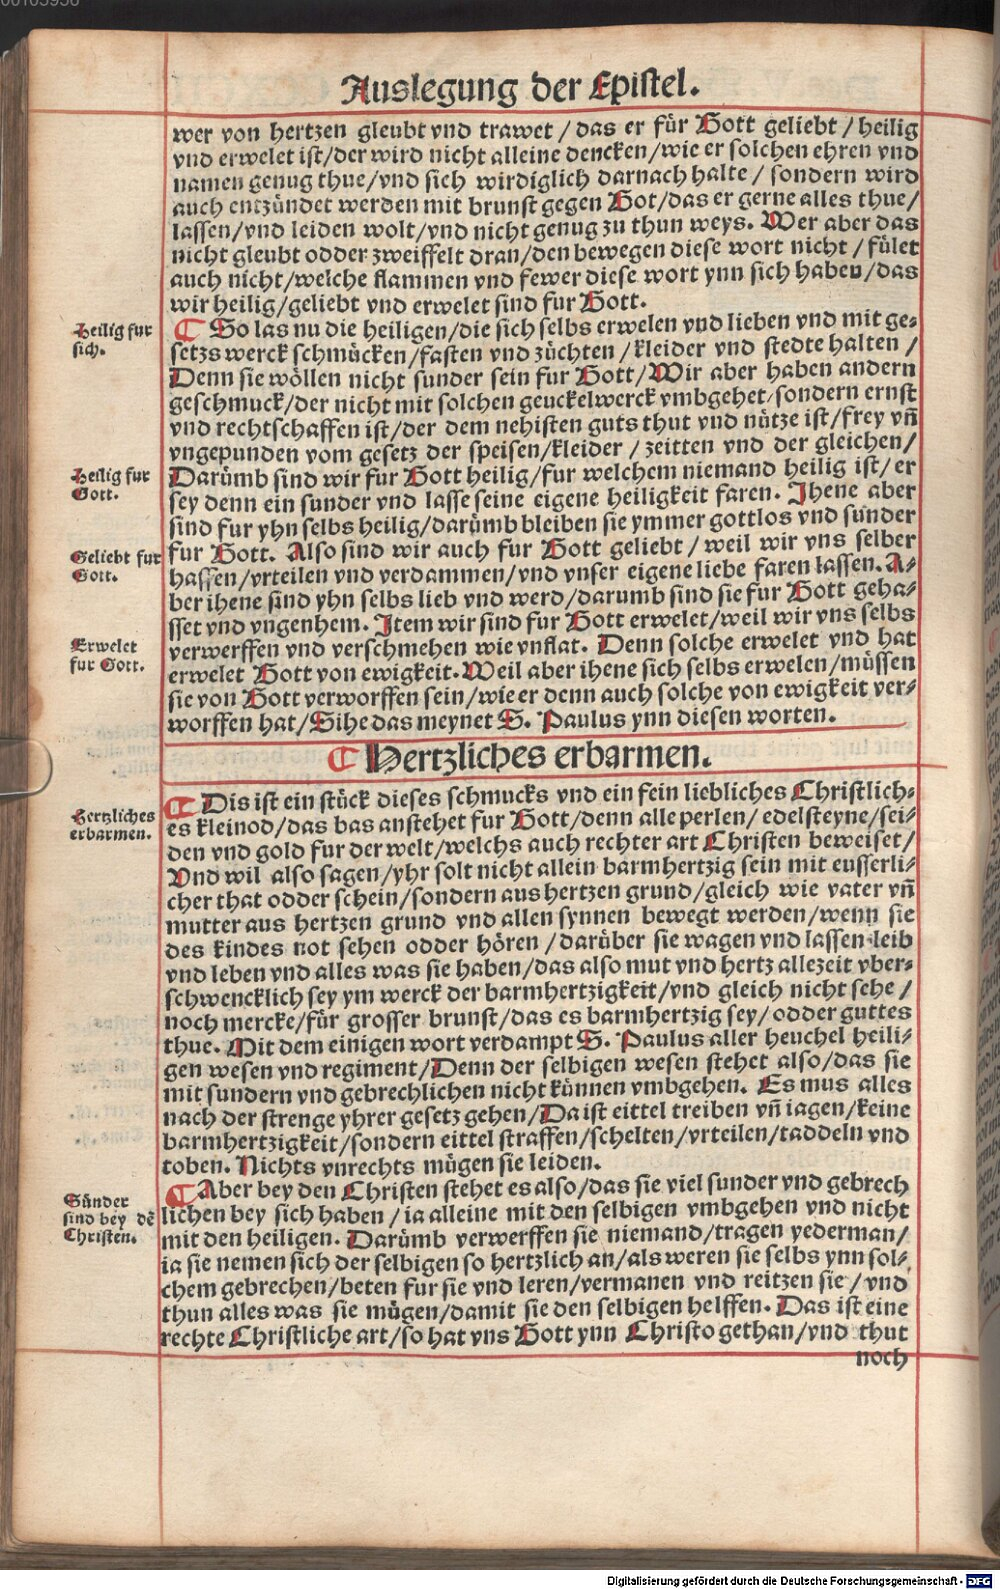 Auslegung der Epistel.
wer von hertzen gleubt vnd trawet / das er für Gott geliebt / heilig
vnd erwelet ist/der wird nicht alleine dencken/wie er solchen ehren vnd
namen genug thue/vnd sich wirdiglich darnach halte / sondern wird
auch entzündet werden mit brunst gegen Got/das er gerne alles thue/
lassen/vnd leiden wolt/vnd nicht genug zu thun weys. Wer aber das
nicht gleubt odder zweiffelt dran/den bewegen diese wort nicht / fület
auch nicht/welche flammen vnd fewer diese wort ynn sich haben/das
wir heilig/geliebt vnd erwelet sind fur Gott.
Heilig fur
sich.
¶ So las nu die heiligen/die sich selbs erwelen vnd lieben vnd mit ge⸗
setzs werck schmücken/fasten vnd züchten / kleider vnd stedte halten /
Denn sie wöllen nicht sunder sein fur Gott/Wir aber haben andern
geschmuck/der nicht mit solchen geuckelwerck vmbgehet/sondern ernst
vnd rechtschaffen ist/der dem nehisten guts thut vnd nütze ist/frey vn̄
vngepunden vom gesetz der speisen/kleider / zeitten vnd der gleichen/
Heilig fur
Gott.
Darümb sind wir für Gott heilig/fur welchem niemand heilig ist/er
sey denn ein sunder vnd lasse seine eigene heiligkeit faren. Jhene aber
sind fur yhn selbs heilig/darümb bleiben sie ymmer gottlos vnd sunder
Geliebt fur
Gott.
fur Gott. Also sind wir auch fur Gott geliebt / weil wir vns selber
hassen/vrteilen vnd verdammen/vnd vnser eigene liebe faren lassen. A⸗
ber ihene sind yhn selbs lieb vnd werd/darumb sind sie für Gott geha⸗
sset vnd vngenhem. Item wir sind fur Gott erwelet/weil wir vns selbs
Erwelet
fur Gott.
verwerffen vnd verschmehen wie vnflat. Denn solche erwelet vnd hat
erwelet Gott von ewigkeit. Weil aber ihene sich selbs erwelen/müssen
sie von Gott verworffen sein/wie er denn auch solche von ewigkeit ver⸗
worffen hat/Sihe das meynet S. Paulus ynn diesen worten.
¶ Hertzliches erbarmen.
Hertzliches
erbarmen.
¶ Dis ist ein stück dieses schmucks vnd ein fein liebliches Christlich⸗
es kleinod/das bas anstehet fur Gott/denn alle perlen/ edelsteyne/sei⸗
den vnd gold fur der welt/welchs auch rechter art Christen beweiset/
Vnd wil also sagen/yhr solt nicht allein barmhertzig sein mit eusserli⸗
cher that odder schein/sondern aus hertzen grund/gleich wie vater vn̄
mutter aus hertzen grund vnd allen synnen bewegt werden/wenn sie
des kindes not sehen odder hören / darüber sie wagen vnd lassen leib
vnd leben vnd alles was sie haben/das also mut vnd hertz allezeit vber⸗
schwencklich sey ym werck der barmhertzigkeit/vnd gleich nicht sehe /
noch mercke/für grosser brunst/das es barmhertzig sey/ odder guttes
thue. Mit dem einigen wort verdampt S. Paulus aller heuchel heili⸗
gen wesen vnd regiment/Denn der selbigen wesen stehet also/das sie
mit sundern vnd gebrechlichen nicht künnen vmbgehen. Es mus alles
nach der strenge yhrer gesetz gehen/Da ist eittel treiben vn̄ iagen/keine
barmhertzigkeit/sondern eittel straffen/schelten/vrteilen/taddeln vnd
toben. Nichts vnrechts mügen sie leiden.
Sünder
sind bey dē
Christen.
¶ Aber bey den Christen stehet es also/das sie viel sunder vnd gebrech
lichen bey sich haben / ia alleine mit den selbigen vmbgehen vnd nicht
mit den heiligen. Darümb verwerffen sie niemand/tragen yederman/
ia sie nemen sich der selbigen so hertzlich an/als weren sie selbs ynn sol⸗
chem gebrechen/beten fur sie vnd leren/vermanen vnd reitzen sie / vnd
thun alles was sie mügen/damit sie den selbigen helffen. Das ist eine
rechte Christliche art/so hat vns Gott ynn Christo gethan/vnd thut
noch
Digitalisierung gefördert durch die Deutsche Forschungsgemeinschaft - DFG